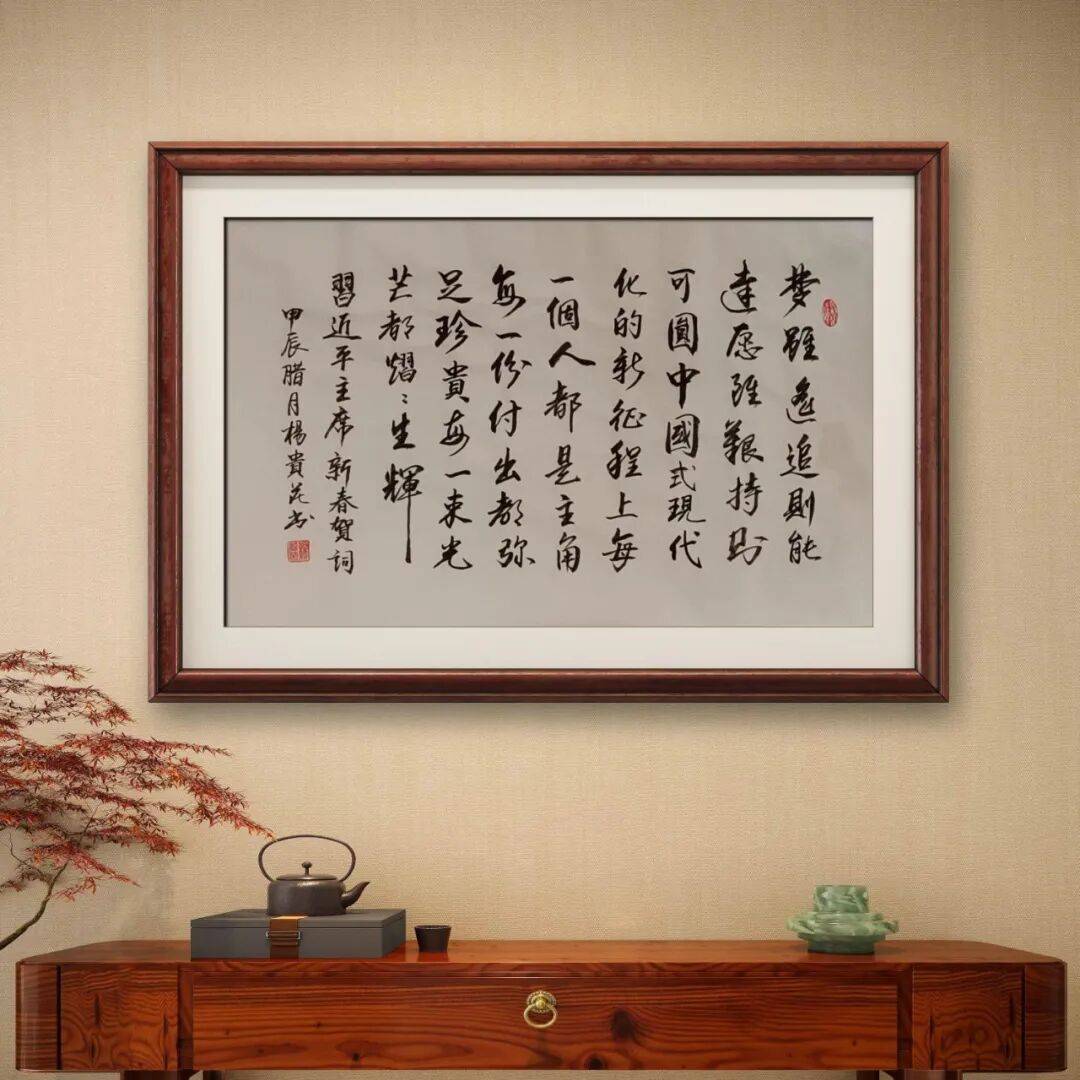 夢雖遙追則能
達愿雖艱持則
可圓中國式現代
化的新征程上每
一個人都是主角
每一份付出都弥
足珍貴每一束光
芒都熠々生輝
習近平主席新春贺詞
甲辰腊月楊貴书